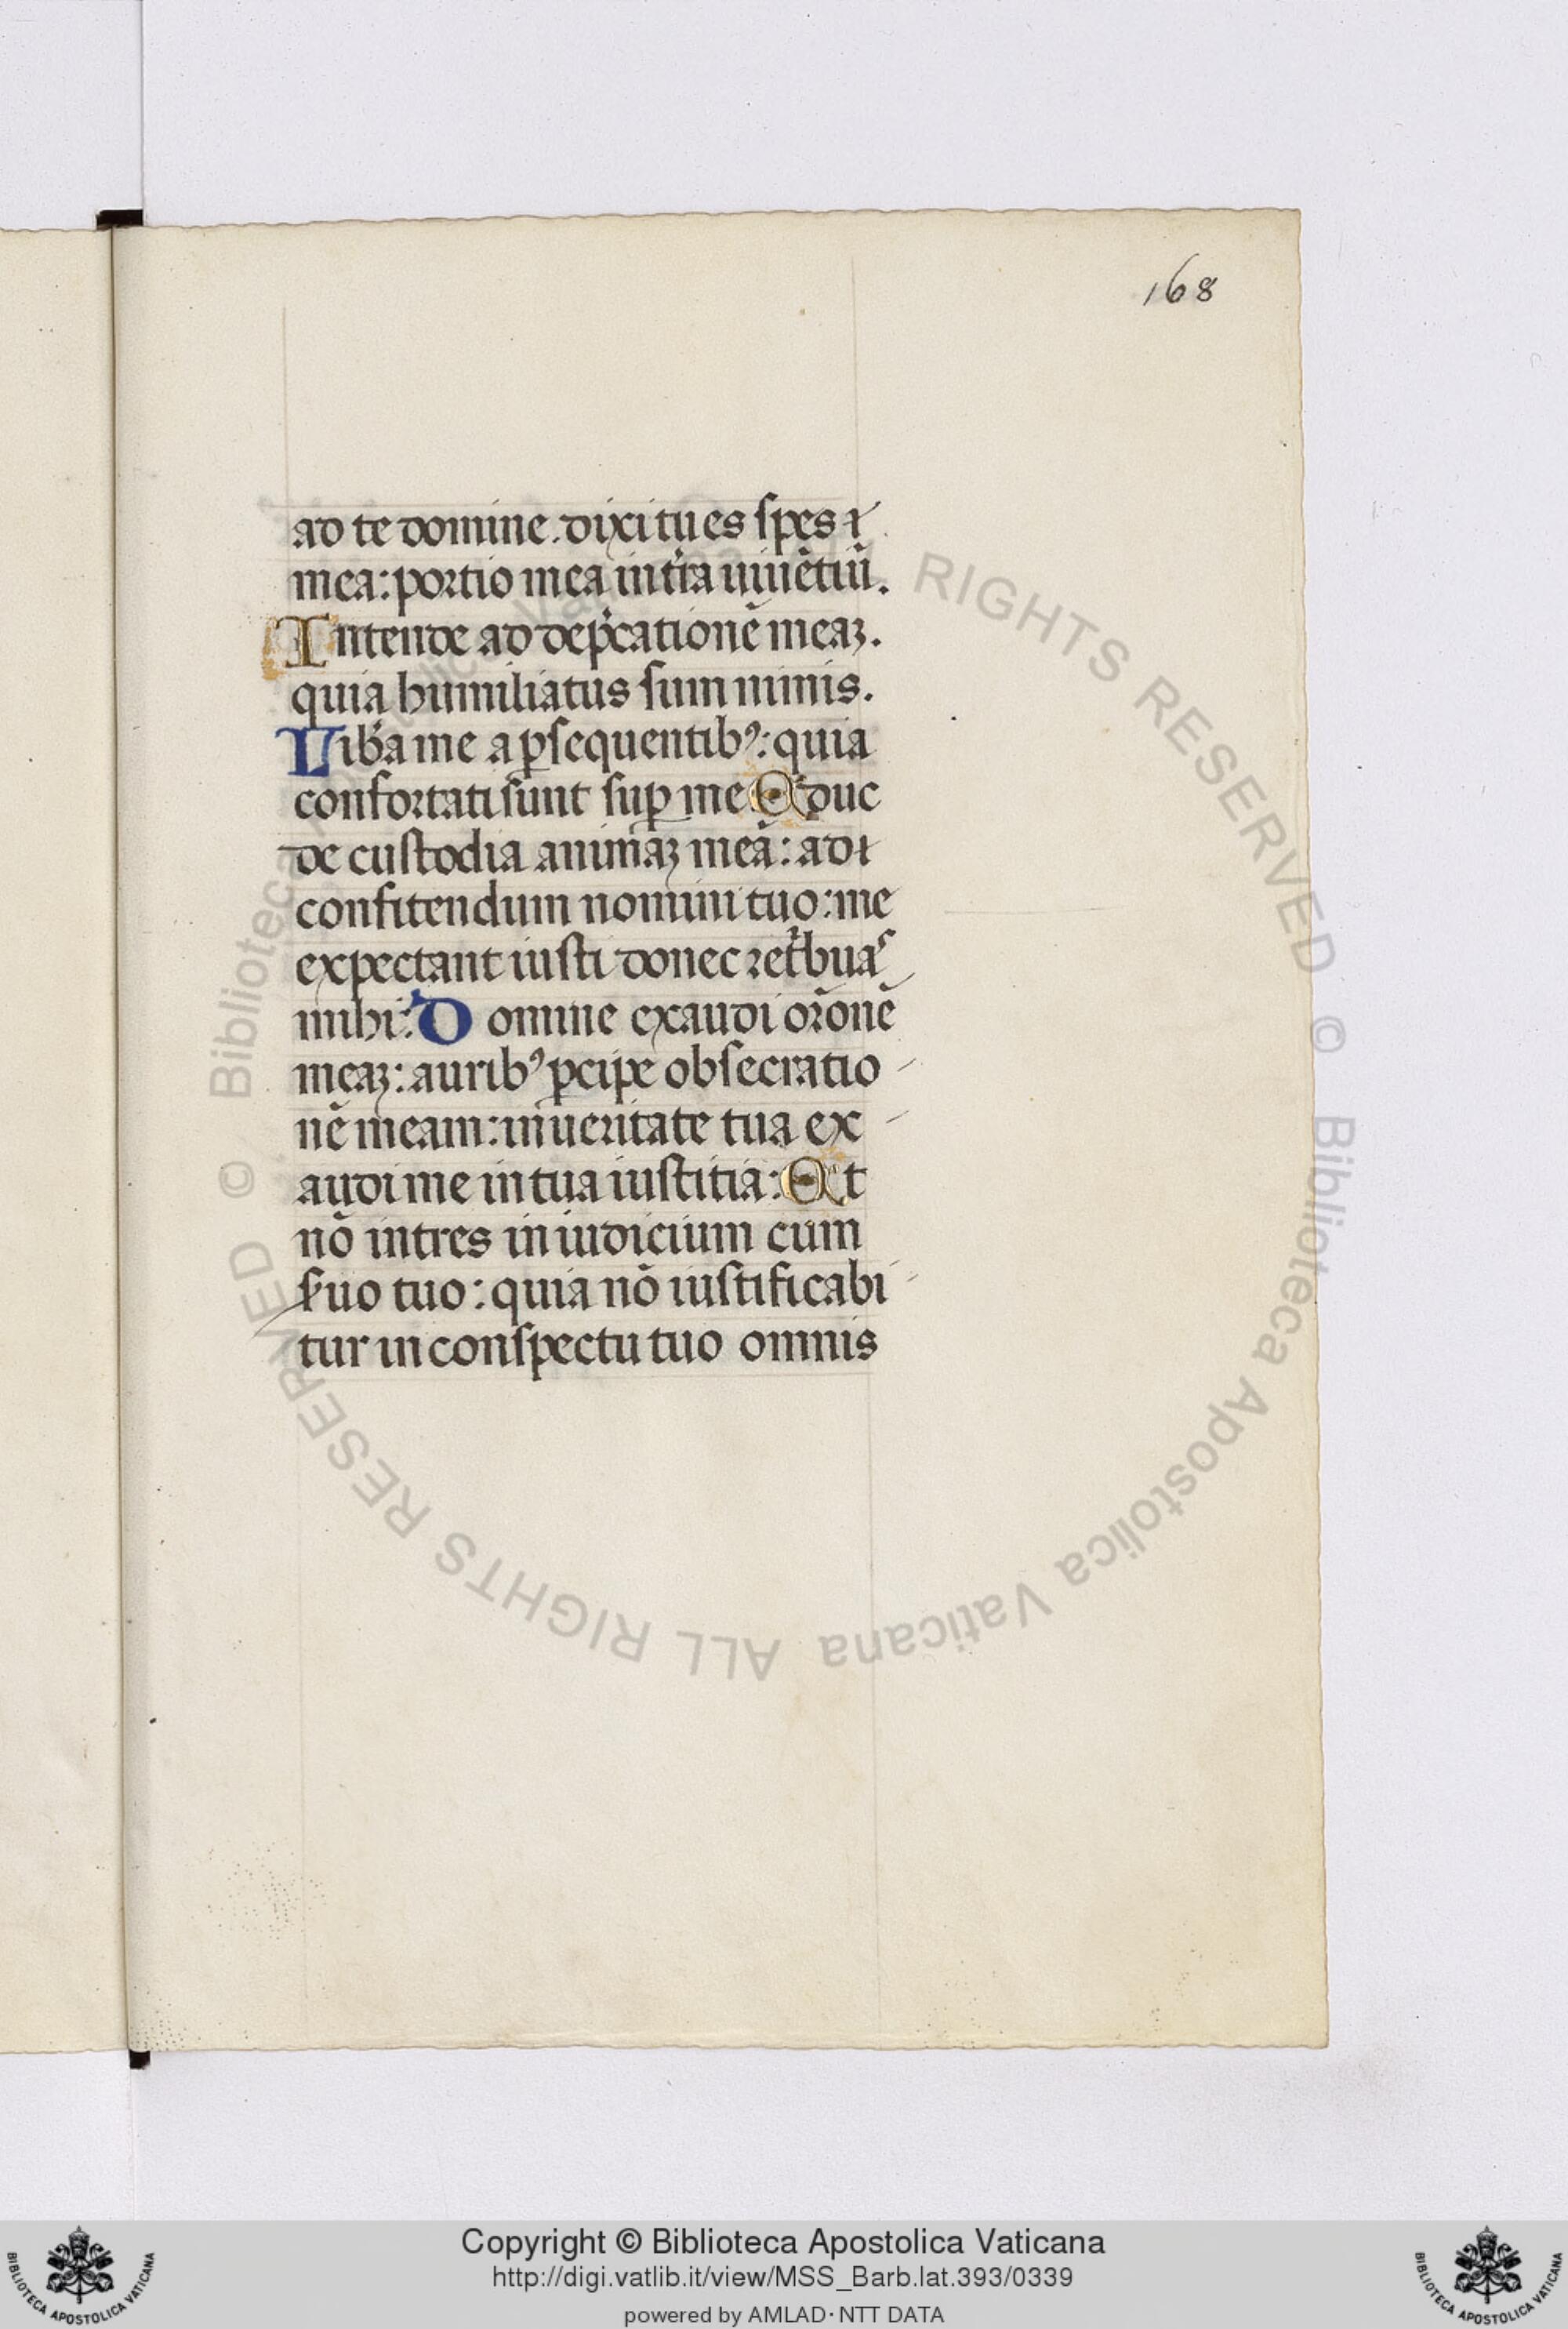 168
ad te domine. dixi tu es spes
mea: portio mea in tr̃a uiuẽtiũ.
Intende ad dep̃cationẽ meaꝫ.
quia humiliatus sum nimis.
Lib̾a me a ꝑsequentibꝰ: quia
confortati sunt suꝑ me Educ
de custodia animaꝫ meã: ad
confitendum nomini tuo: me
expectant iusti donec retͥbuas
mihi: Domine exaudi or̃onẽ
meaꝫ: auribꝰ ꝑcipe obsecratio
nẽ meam: in ueritate tua ex
audi me in tua iustitia: Et
nõ intres in iudicium cum
s̾uo tuo: quia nõ iustificabi
tur in conspectu tuo omnis
© Biblioteca Apostolica Vaticana ALL RIGHTS RESERVED © Biblioteca Apostolica Vaticana ALL RIGHTS RESERVED
Copyright © Biblioteca Apostolica Vaticana
http://digi.vatlib.it/view/MSS_Barb.lat.393/0339
powered by AMLAD·NTT DATA
BIBLIOTECA APOSTOLICA VATICANA
BIBLIOTECA APOSTOLICA VATICANA